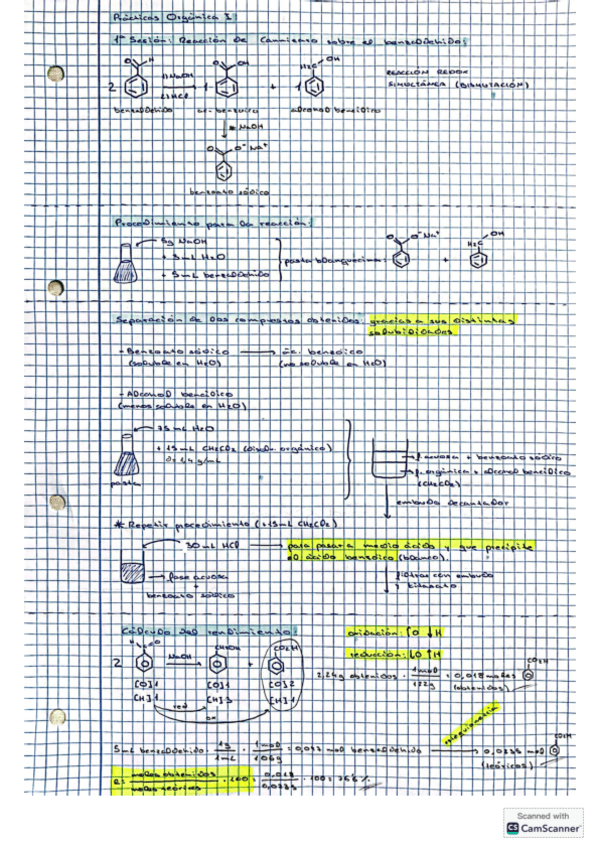 Prácticas Orgánica I:
1ª Sesión: Reacción de Cannizaro sobre el benzaldehido:
REACCIÓN REDOX
SIMULTÁNEA (DISMUTACIÓN)
2 1) NaOH 2) HCl 1 + 1
benzaldehido ác. benzoico alcohol bencílico
NaOH
O⁻ Na⁺
benzoato sódico
Procedimiento para la reacción:
5g NaOH
+ 5mL H2O
+ 5mL benzaldehido
pasta blanquecina:
Separación de los compuestos obtenidos gracias a sus distintas
solubilidades
- Benzoato sódico → ác. benzoico
(soluble en H2O) (no soluble en H2O)
- Alcohol bencílico
(menos soluble en H2O)
75mL H2O
+ 15mL CH2Cl2 (disolv. orgánico)
g/mL
pasta
f. acuosa + benzoato sódico
f. orgánica + alcohol bencílico
(CH2Cl2)
embudo decantador
* Repetir procedimiento (+15mL CH2Cl2)
30mL HCl → para pasar a medio ácido y que precipite
el ácido benzoico (blanco).
fase acuosa
+
benzoato sódico
filtras con embudo
y kitasato
Cálculo del rendimiento:
oxidación: ↑O ↓H
reducción: ↓O ↑H
2 NaOH + CO2H
[O]1 [O]1 [O]2
[H]1 [H]3 [H]1
red
ox
2,24g obtenidos · 1mol / 122g = 0,018 moles
(obtenidos)
5mL benzaldehido · 1g / 1mL · 1mol / 106g = 0,047 mol benzaldehido → 0,0235 mol
estequiometría
(teóricos)
R = moles obtenidos / moles teóricos · 100 = 0,018 / 0,0235 · 100 = 76'6%
Scanned with
CS CamScanner